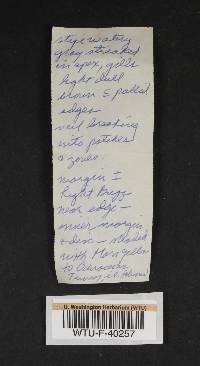 stipe watery
gray streaked
in apex, gills
light dull
brown & pallid
edges
veil breaking
into patches
& zones.
margin ±
light Buff
near edge –
inner margin
& disc – shaded
with Mars Yellow
to Ochraceous
Tawny
U. Washington Herbarium (WTU)
WTU-F-40257